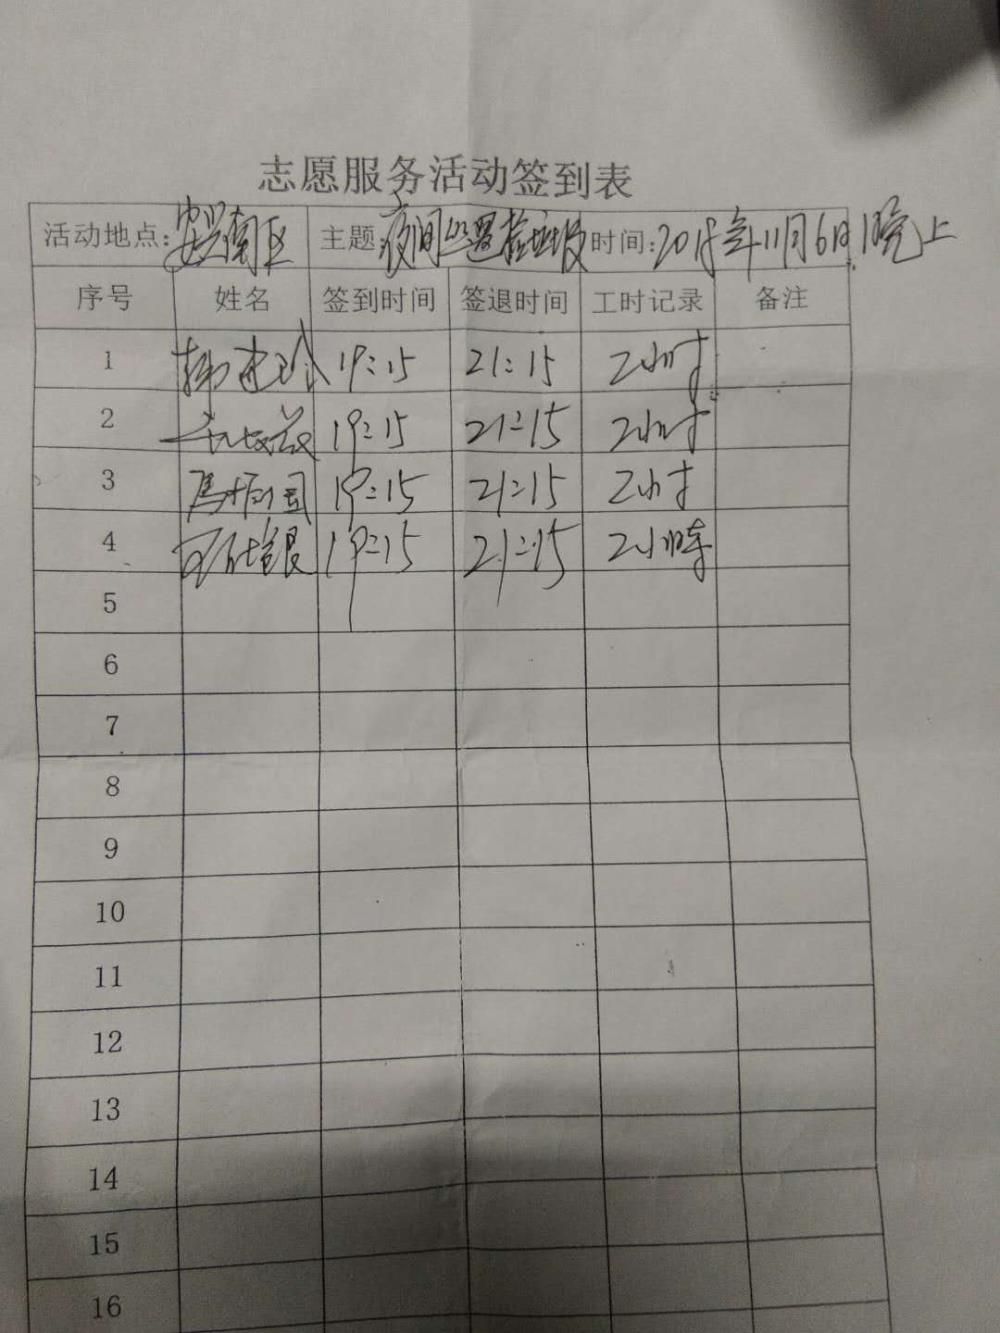 志愿服务活动签到表
活动地点:安兴南区 主题:夜间巡逻捡垃圾 时间:2018年11月6日晚上
序号 姓名 签到时间 签退时间 工时记录 备注
1 19:15 21:15 2小时
2 19:15 21:15 2小时
3 19:15 21:15 2小时
4 19:15 21:15 2小时
5
6
7
8
9
10
11
12
13
14
15
16